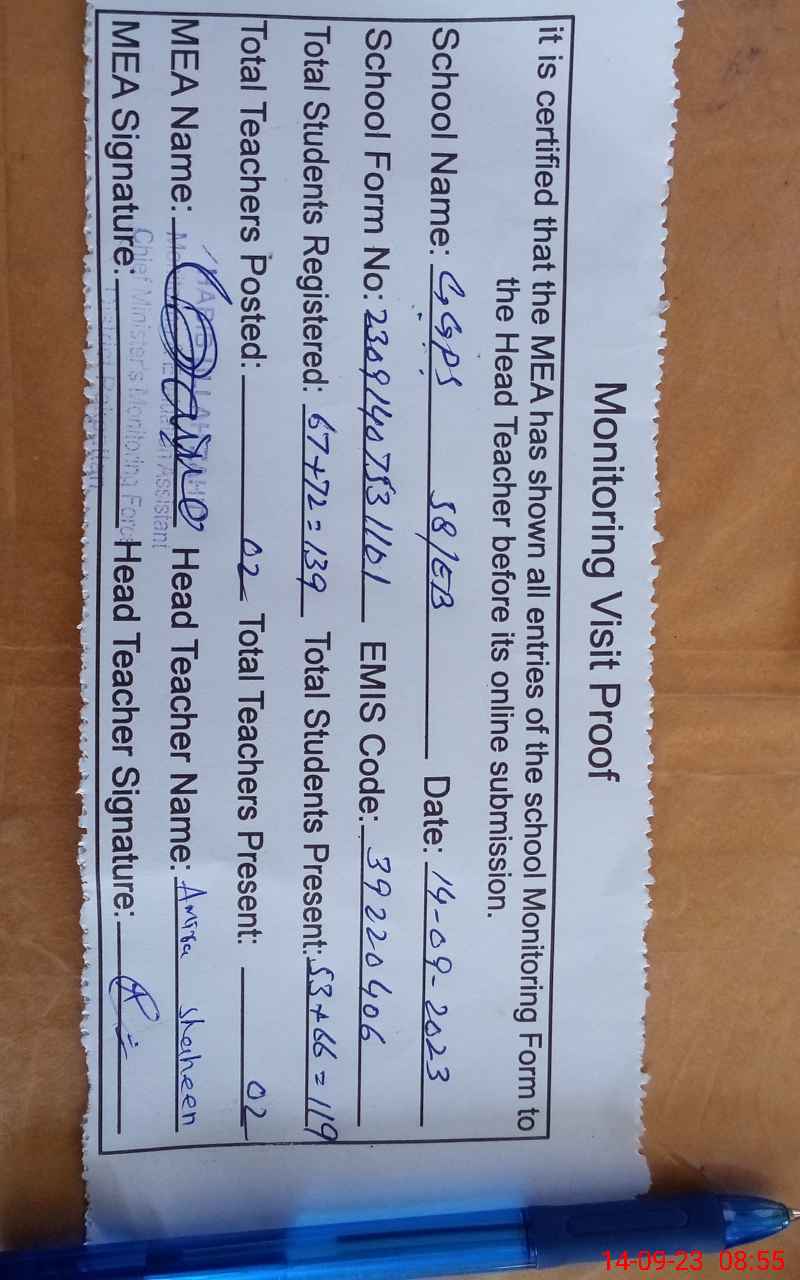 Monitoring Visit Proof
it is certified that the MEA has shown all entries of the school Monitoring Form to
the Head Teacher before its online submission.
School Name: GGPS 58/EB Date: 14-09-2023
School Form No: 23091407531101 EMIS Code: 39220406
Total Students Registered: 67+72=139 Total Students Present: 53+66=119
Total Teachers Posted: 02 Total Teachers Present: 02
MEA Name: Head Teacher Name: Shaheen
MEA Signature: Head Teacher Signature:
Assistant
Chief Minister's Monitoring Force
14-09-23 08:55